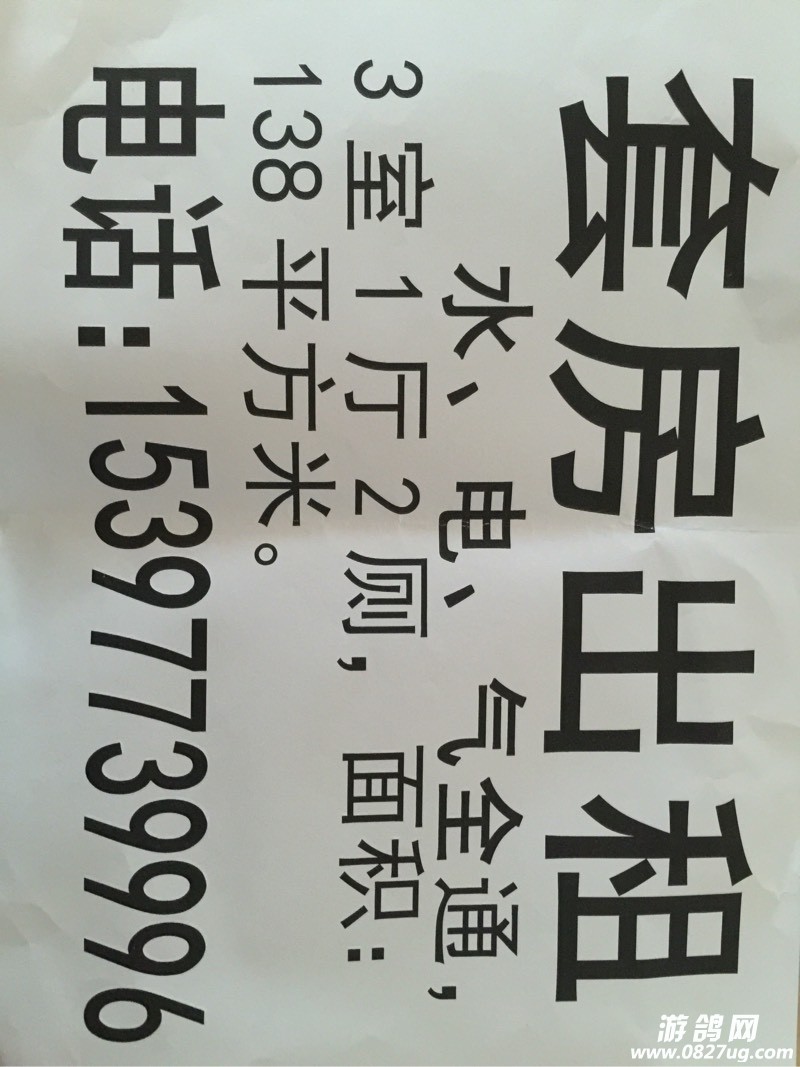 套房出租
水、电、气全通，
3室1厅2厕，面积：
138平方米。
电话：15397739996
游鸽网
www.0827ug.com